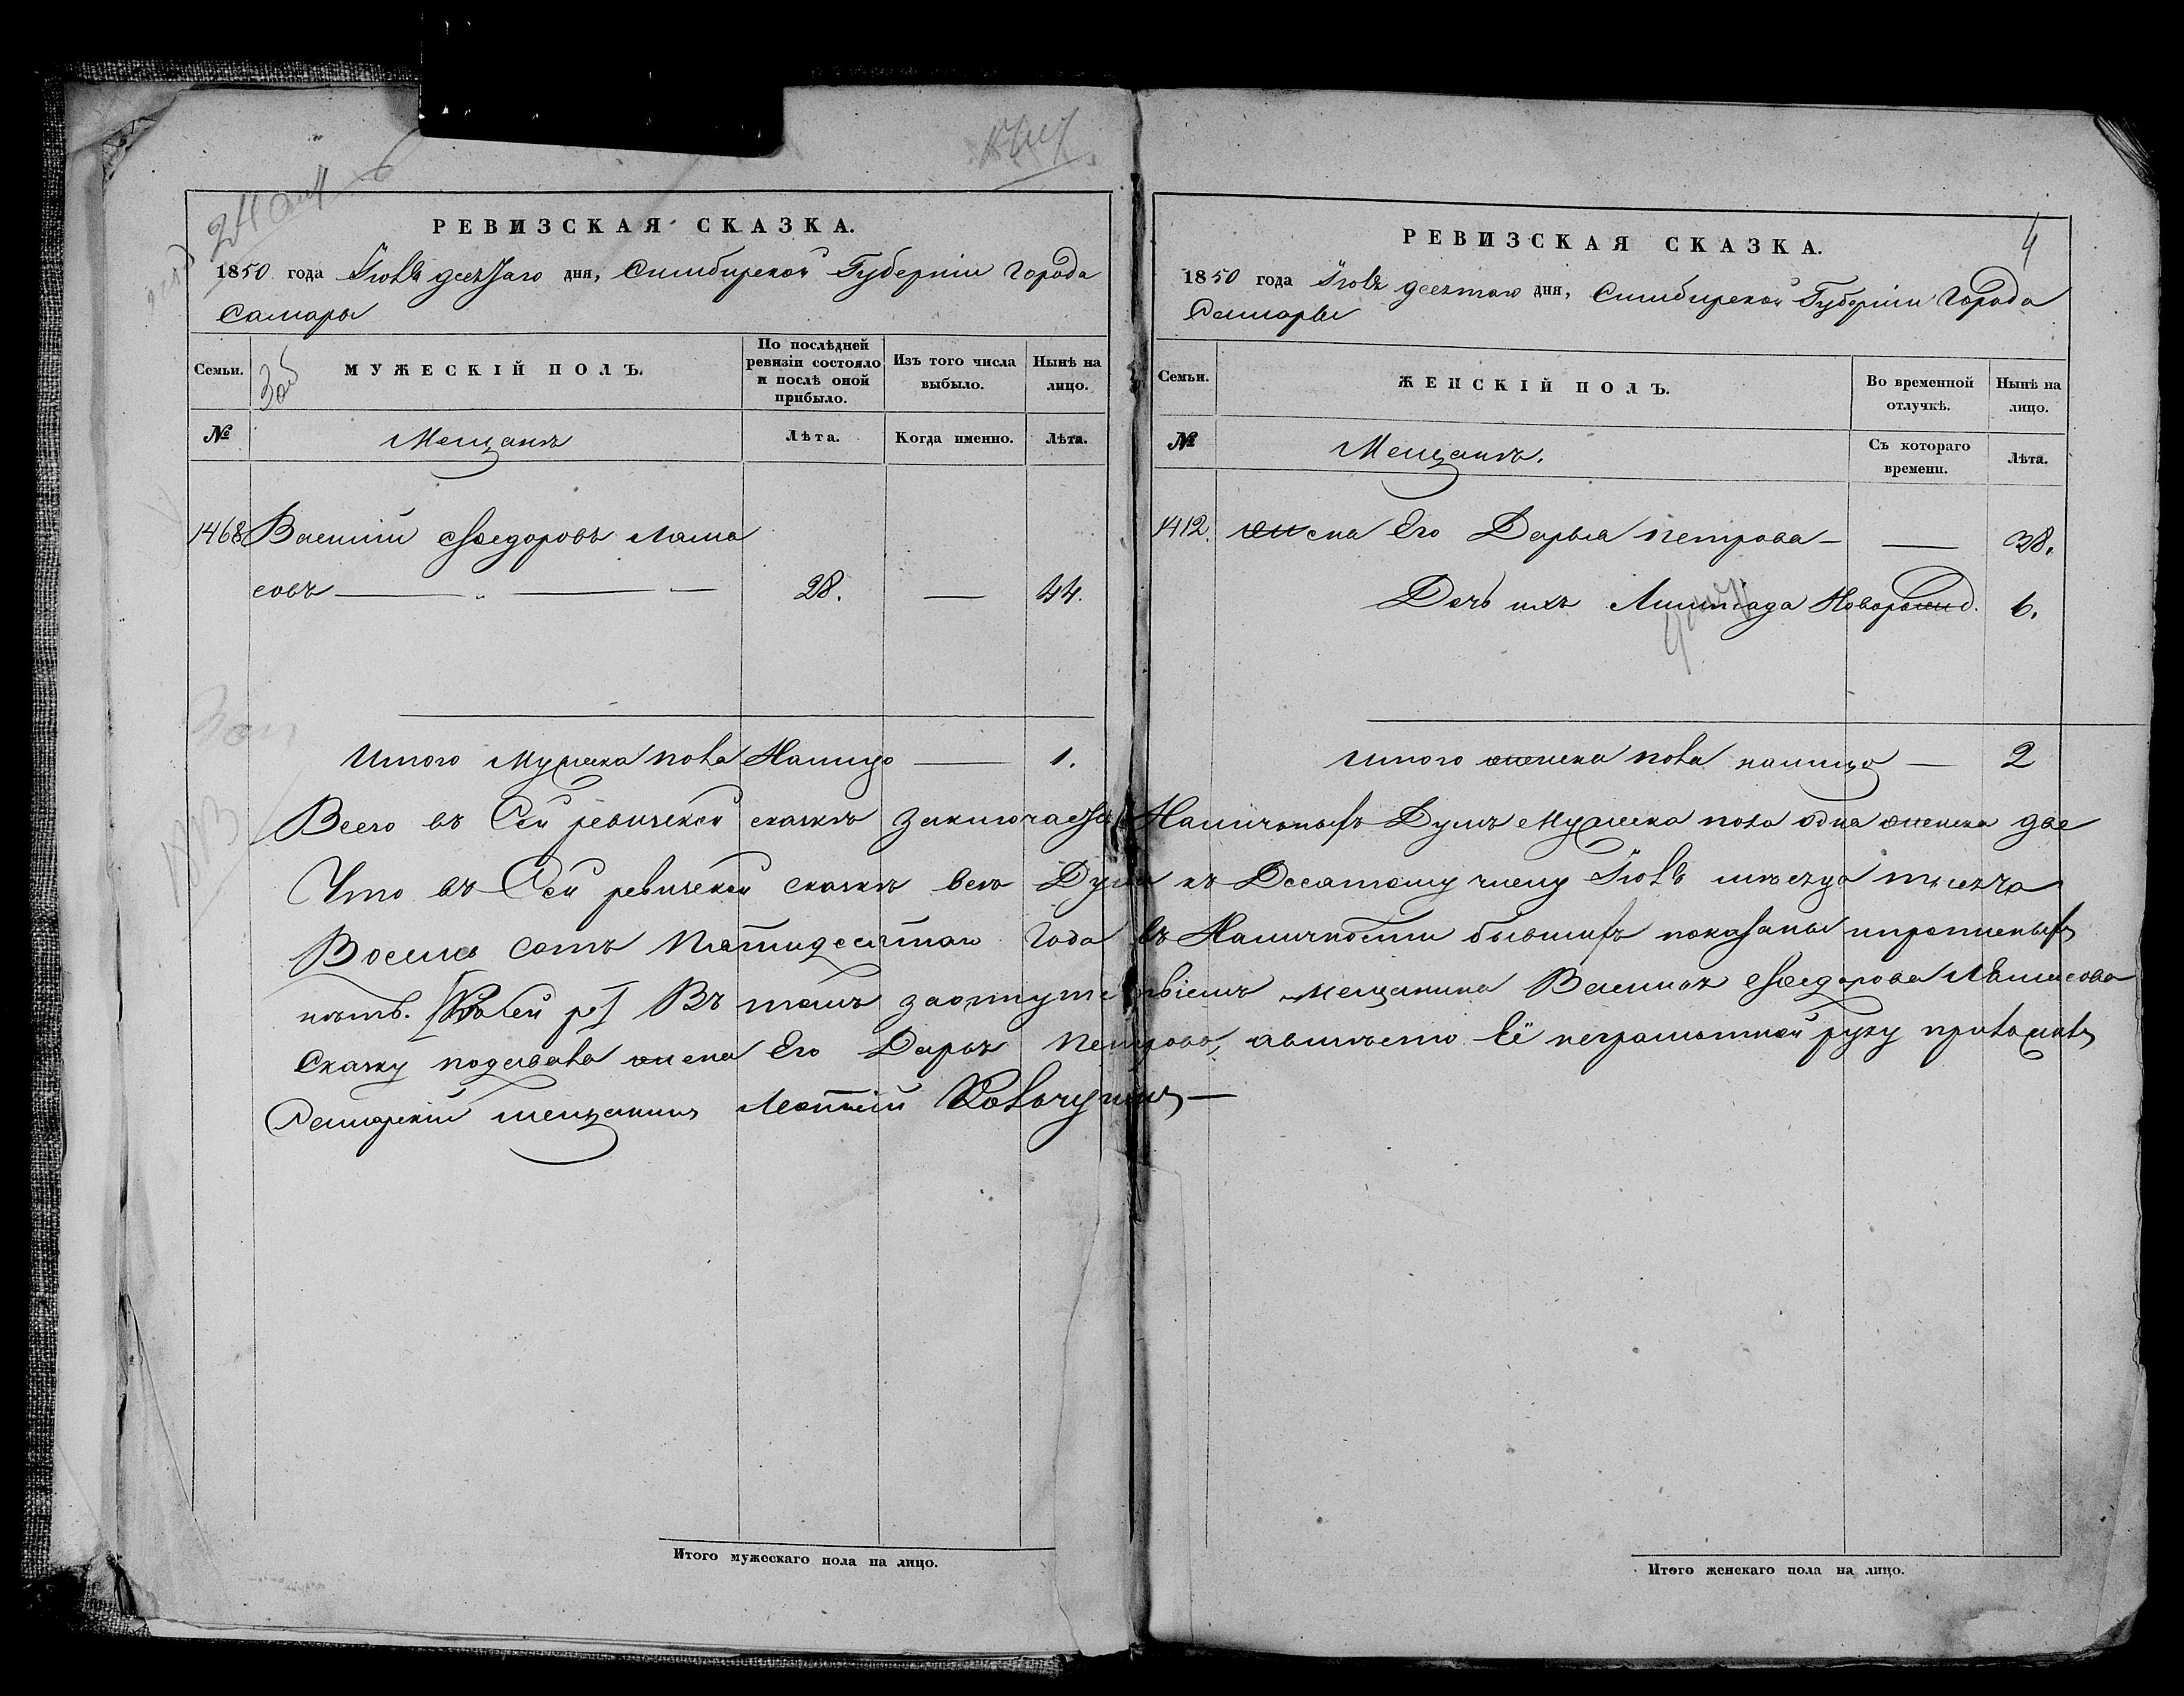 РЕВИЗСКАЯ СКАЗКА.
1850 года Iюля десятаго дня, Симбирской Губернiи города
Самары
Семьи.
МУЖЕСКІЙ ПОЛЪ.
По послѣдней ревизіи состояло и послѣ оной прибыло.
Изъ того числа выбыло.
Нынѣ на лицо.
№
Мещанъ
Лѣта.
Когда именно.
Лѣта.
1468 Василiй Ѳедоровъ Лама
совъ — 28. — 44.
Итого Мужеска пола Налицо — 1.
РЕВИЗСКАЯ СКАЗКА.
4
1850 года Iюля десятаго дня, Симбирской Губернiи города
Самары
Семьи.
ЖЕНСКІЙ ПОЛЪ.
Во временной отлучкѣ.
Нынѣ на лицо.
№
Мещанъ.
Съ котораго времени.
Лѣта.
1412. жена Его Дарья петрова — — 38.
Дочь ихъ Новорожд. 6.
Итого женска пола налицо — 2
Всего въ Сей ревизской сказкѣ заключается Наличныхъ Душъ Мужеска пола одна женска две
Что въ Сей ревизской сказкѣ все Души къ Десятому числу Iюля мѣсяца тысяча
Восемь сотъ пятидесятаго года въ Наличности бывшихъ показаны и прописныхъ
нѣтъ. Въ томъ заотпутствiемъ мещанина Василья Ѳедорова Ламасова
Сказку подавала жена Его Дарья петрова, авместо Её неграмотной руку приложилъ
Самарскiй мещанинъ
Итого мужескаго пола на лицо.
Итого женскаго пола на лицо.